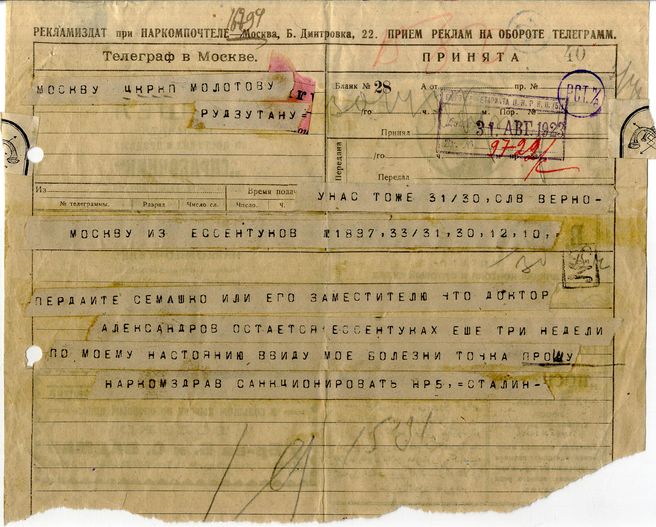 16794
РЕКЛАМИЗДАТ при НАРКОМПОЧТЕЛЕ Москва, Б. Дмитровка, 22. ПРИЕМ РЕКЛАМ НА ОБОРОТЕ ТЕЛЕГРАММ.
Телеграф в Москве.
ПРИНЯТА
40
МОСКВУ ЦКРКП МОЛОТОВУ
РУДЗУТАНУ=
Бланк № 28
А от
пр. №
/го
м. Пор. №
Принял
31. АВГ. 192
Передана
/го
Передал
Из
Время подачи
№ телеграммы. Разряд Число сл. Число. Ч.
УНАС ТОЖЕ 31/30,СЛВ ВЕРНО-
МОСКВУ ИЗ ЕССЕНТУКОВ №1897,33/31,30,12,10,=
ПЕРДАИТЕ СЕМАШКО ИЛИ ЕГО ЗАМЕСТИТЕЛЮ ЧТО ДОКТОР
АЛЕКСАНДРОВ ОСТАЕТСЯ ЕССЕНТУКАХ ЕШЕ ТРИ НЕДЕЛИ
ПО МОЕМУ НАСТОЯНИЮ ВВИДУ МОЕ БОЛЕЗНИ ТОЧКА ПРОШУ
НАРКОМЗДРАВ САНКЦИОНИРОВАТЬ НР5,=СТАЛИН-